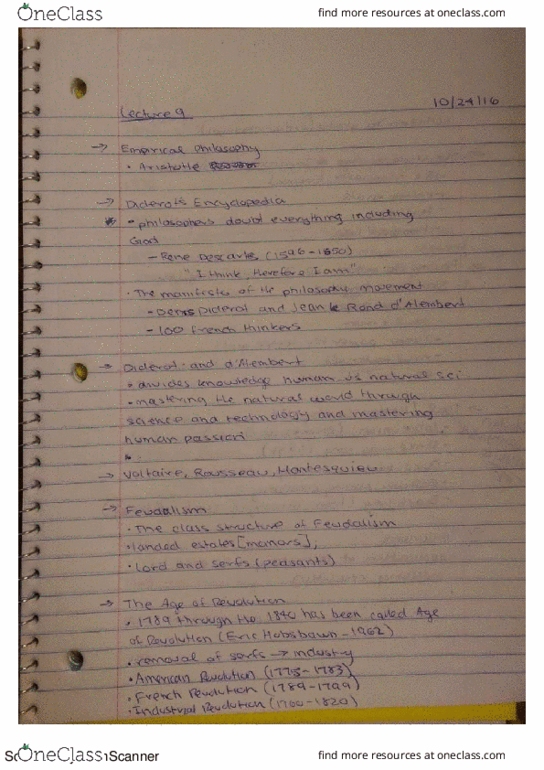 OneClass
find more resources at oneclass.com
10/24/16
Lecture 9
→ Emperical Philosophy
• Aristotle
→ Diderot's Encyclopedia
- philosophers doubt everything including
God
- Rene Descartes (1596-1650)
"I think, therefore I am"
• The manifesto of the philosophy movement
- Denis Diderot and Jean le Rond d'Alembert
- 100 French thinkers
→ Diderot and d'Alembert
• divides knowledge human vs natural sci
• mastering the natural world through
science and technology and mastering
human passion
→ Voltaire, Rousseau, Montesquieu
→ Feudalism
• The class structure of Feudalism
• landed estates [manors],
• Lord and serfs (peasants)
→ The Age of Revolution
• 1789 through the 1840 has been called Age
of Revolution (Eric Hobsbawn - 1962)
• removal of serfs → industry
• American Revolution (1775-1783)
• French Revolution (1789-1799)
• Industrial Revolution (1760-1820)
OneClass
Scanner
find more resources at oneclass.com